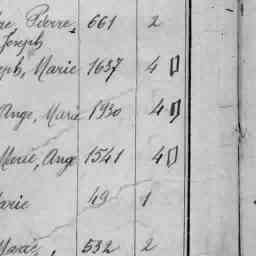 Pierre 661 2
Joseph
eph, Marie 1637 4
Ange, Marie 1930 4
Marie, Ange 1541 4
Marie 49 1
532 2